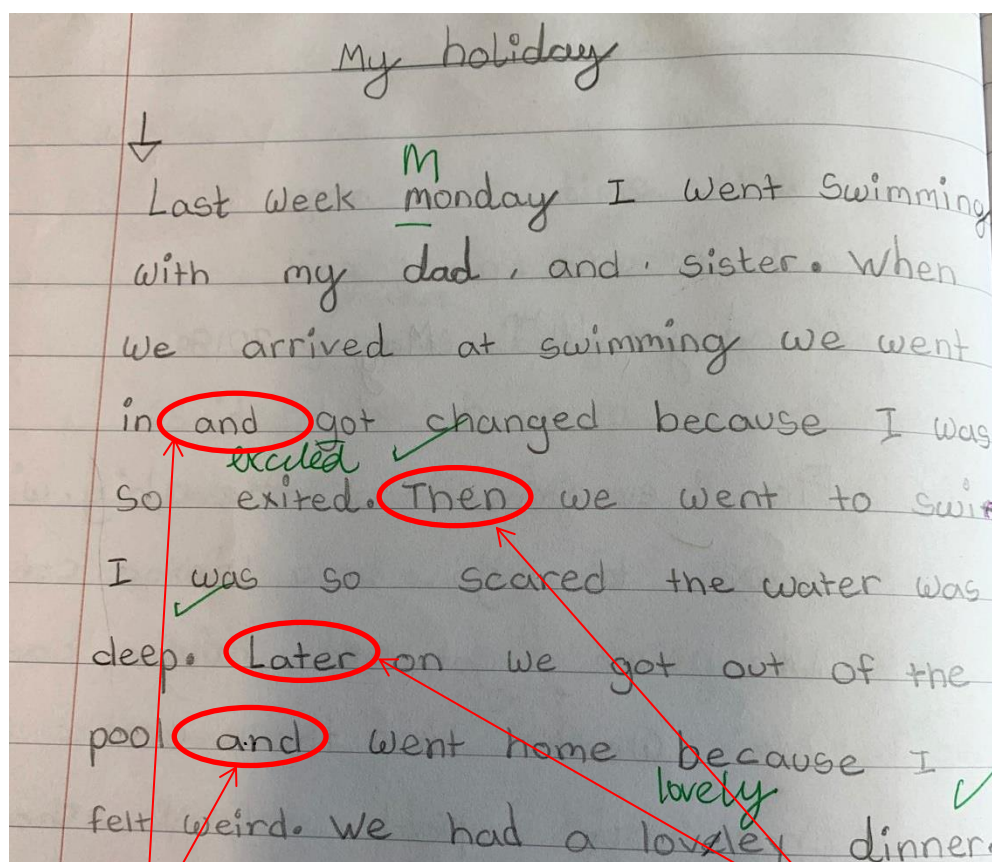 My holiday
M
Last week monday I went Swimming
with my dad, and. sister. When
we arrived at swimming we went
in and got changed because I was
excited
so exited. Then we went to
I was so scared the water was
deep. Later on we got out of the
pool and went home because I
lovely
felt weird. We had a lovley dinner.